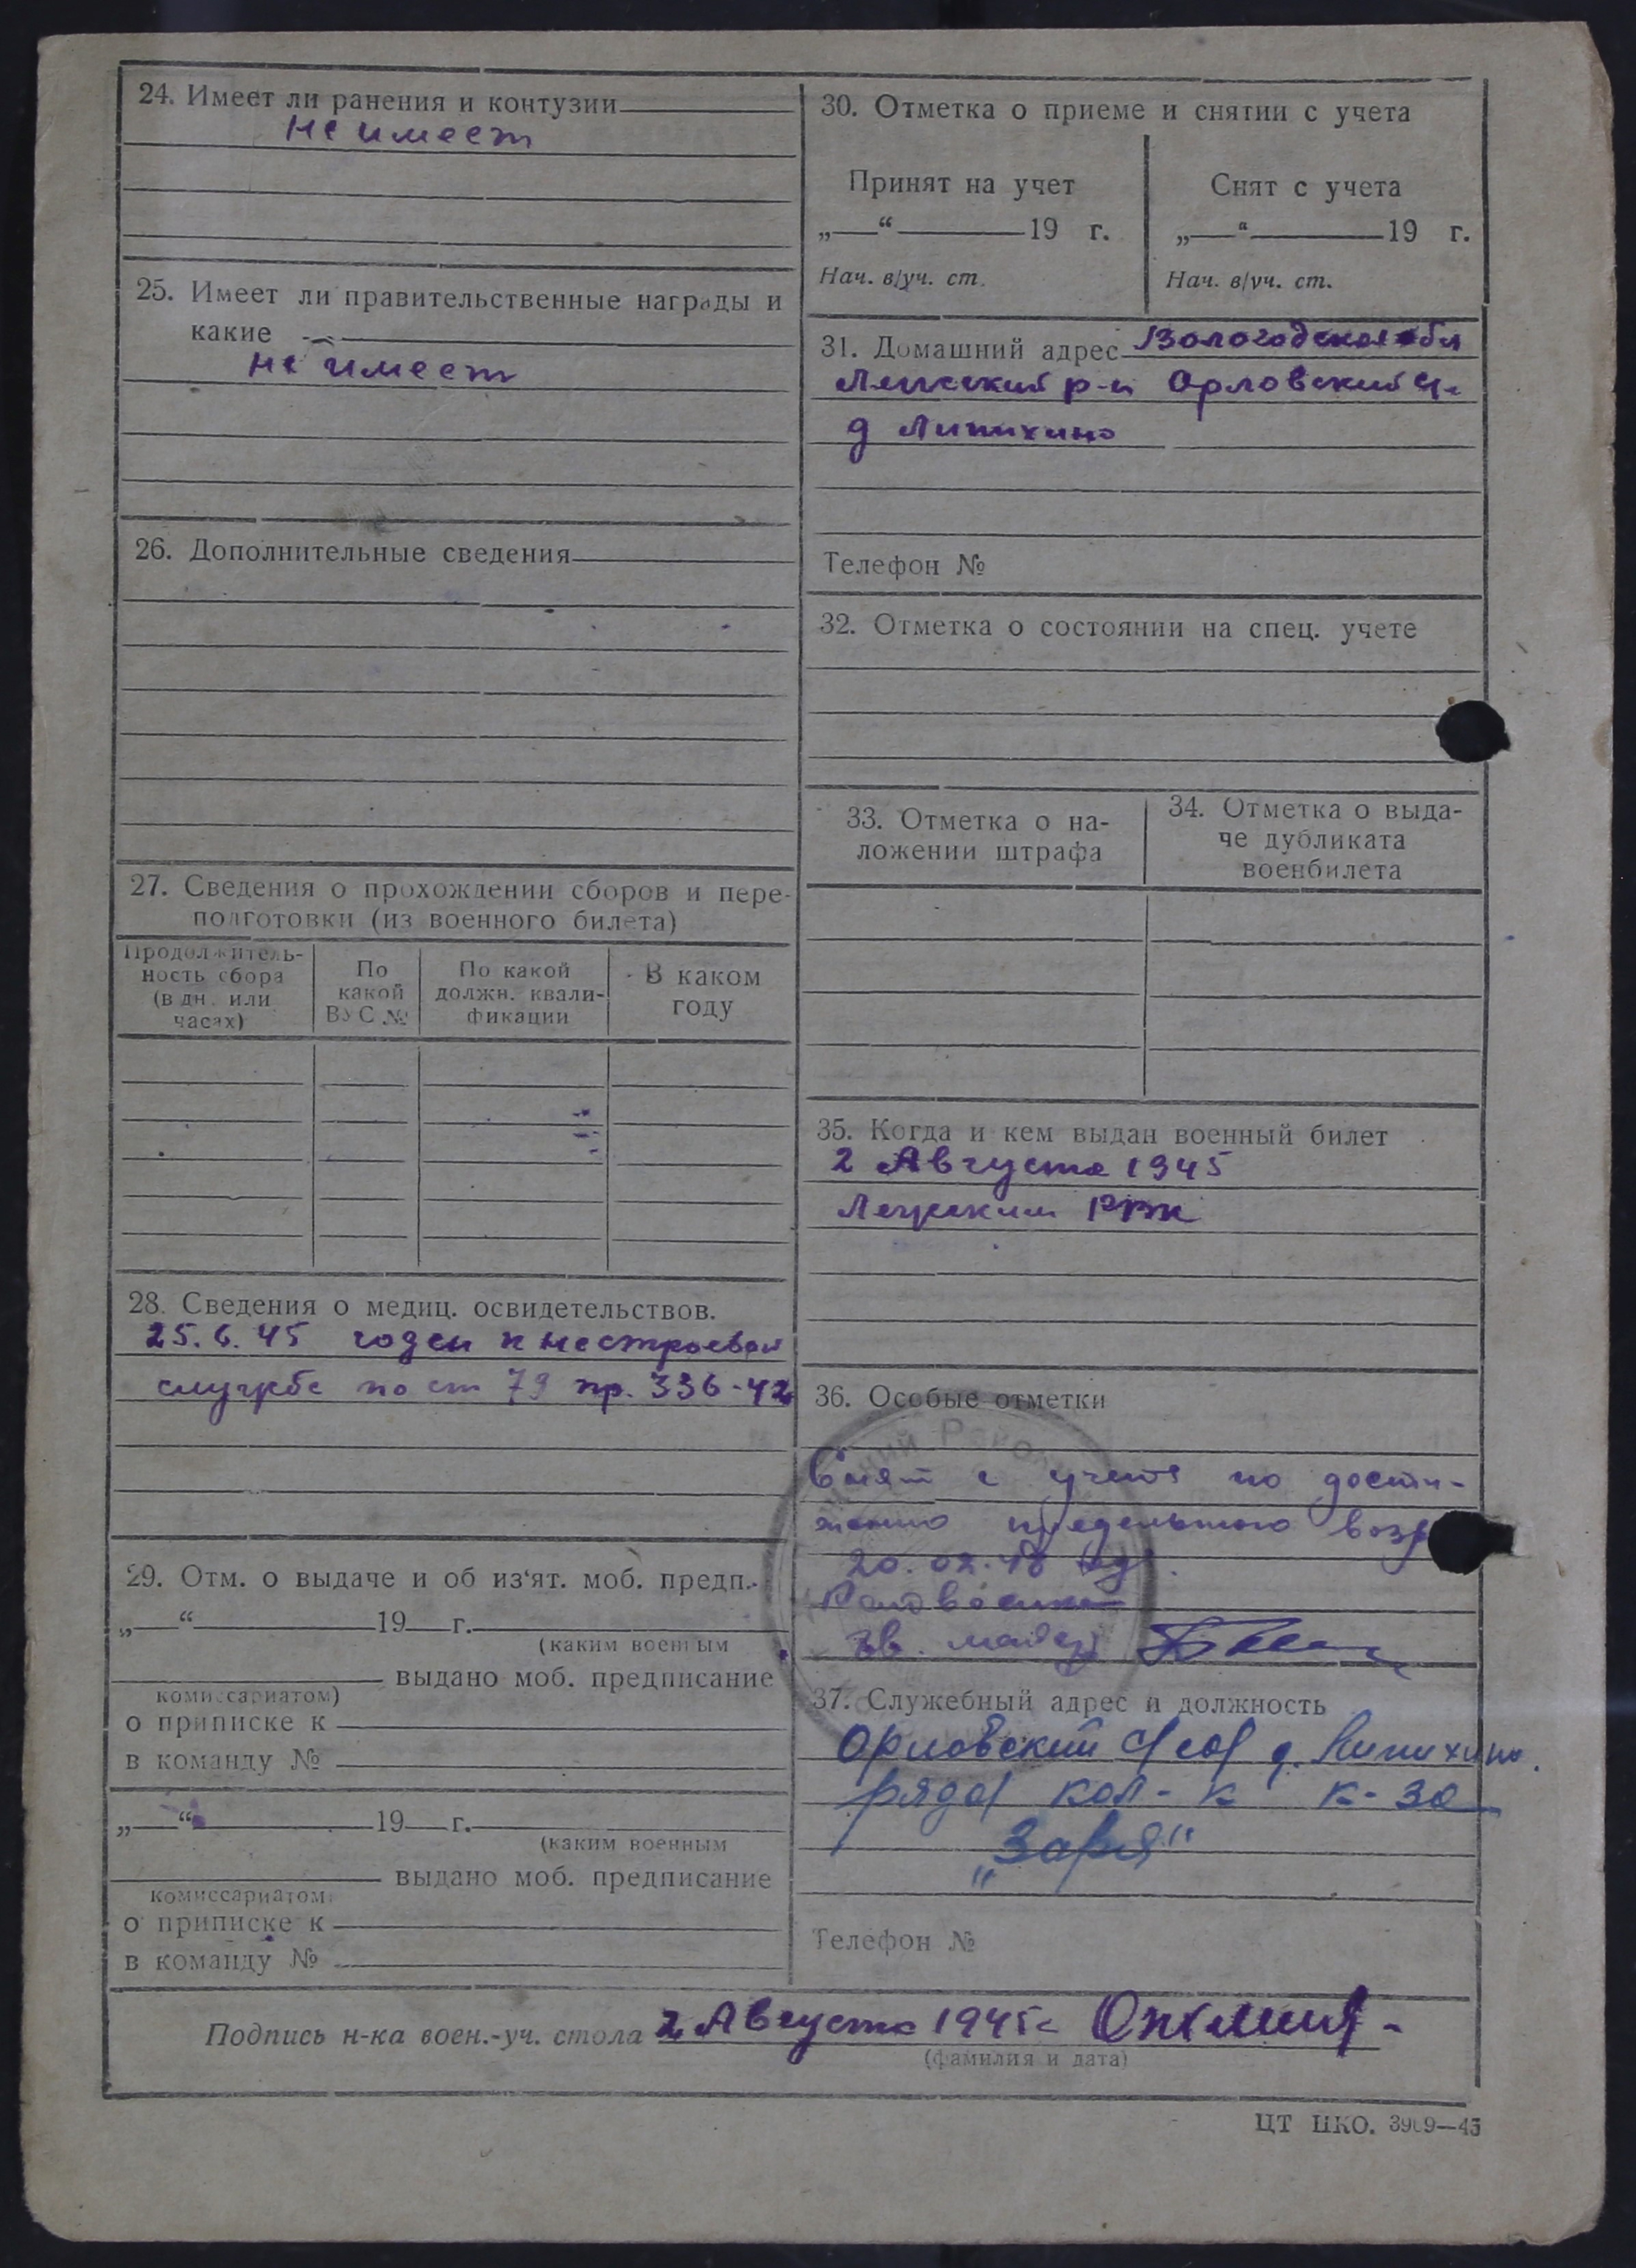 24. Имеет ли ранения и контузии
не имеет
25. Имеет ли правительственные награды и
какие
не имеет
26. Дополнительные сведения
27. Сведения о прохождении сборов и пере-
подготовки (из военного билета)
Продолжитель-
ность сбора
(в дн. или
часах)
По
какой
ВУС №
По какой
должн. квали-
фикации
В каком
году
28. Сведения о медиц. освидетельствов.
25.6.45 годен к нестроевой
службе по ст 79 пр. 336-42
29. Отм. о выдаче и об из'ят. моб. предп.
„—“ 19 г.
(каким военным
выдано моб. предписание
комиссариатом)
о приписке к
в команду №
„—“ 19 г.
(каким военным
выдано моб. предписание
комиссариатом)
о приписке к
в команду №
30. Отметка о приеме и снятии с учета
Принят на учет
„—“ 19 г.
Нач. в/уч. ст.
Снят с учета
„—“ 19 г.
Нач. в/уч. ст.
31. Домашний адрес Вологодская обл
р-н Орловский
д Липихино
Телефон №
32. Отметка о состоянии на спец. учете
33. Отметка о на-
ложении штрафа
34. Отметка о выда-
че дубликата
военбилета
35. Когда и кем выдан военный билет
2 Августа 1945
РВК
36. Особые отметки
Снят с учета по дости-
жению предельного возр
20.02.48
37. Служебный адрес и должность
Орловский с/сов д. Липихино.
ряд кол-к к-за
„Заря“
Телефон №
Подпись н-ка воен.-уч. стола 2 Августа 1945г
(фамилия и дата)
ЦТ НКО. 3969—43